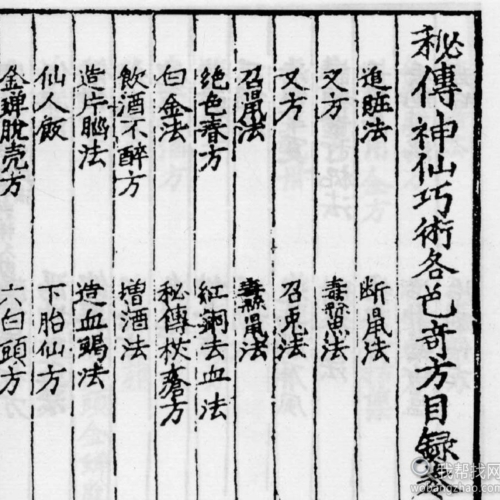 秘傳神仙巧術各色奇方目録
追賍法 断鼠法
又方 法
又方 召兎法
召鼠法 鼠法
绝色春方 紅銅去血法
白金法 秘傳杖瘡方
飲酒不醉方 增酒法
造片腦法 造血竭法
仙人飯 下胎仙方
金蟬脫壳方 六白頭方
我帮找网
wobangzhao.com